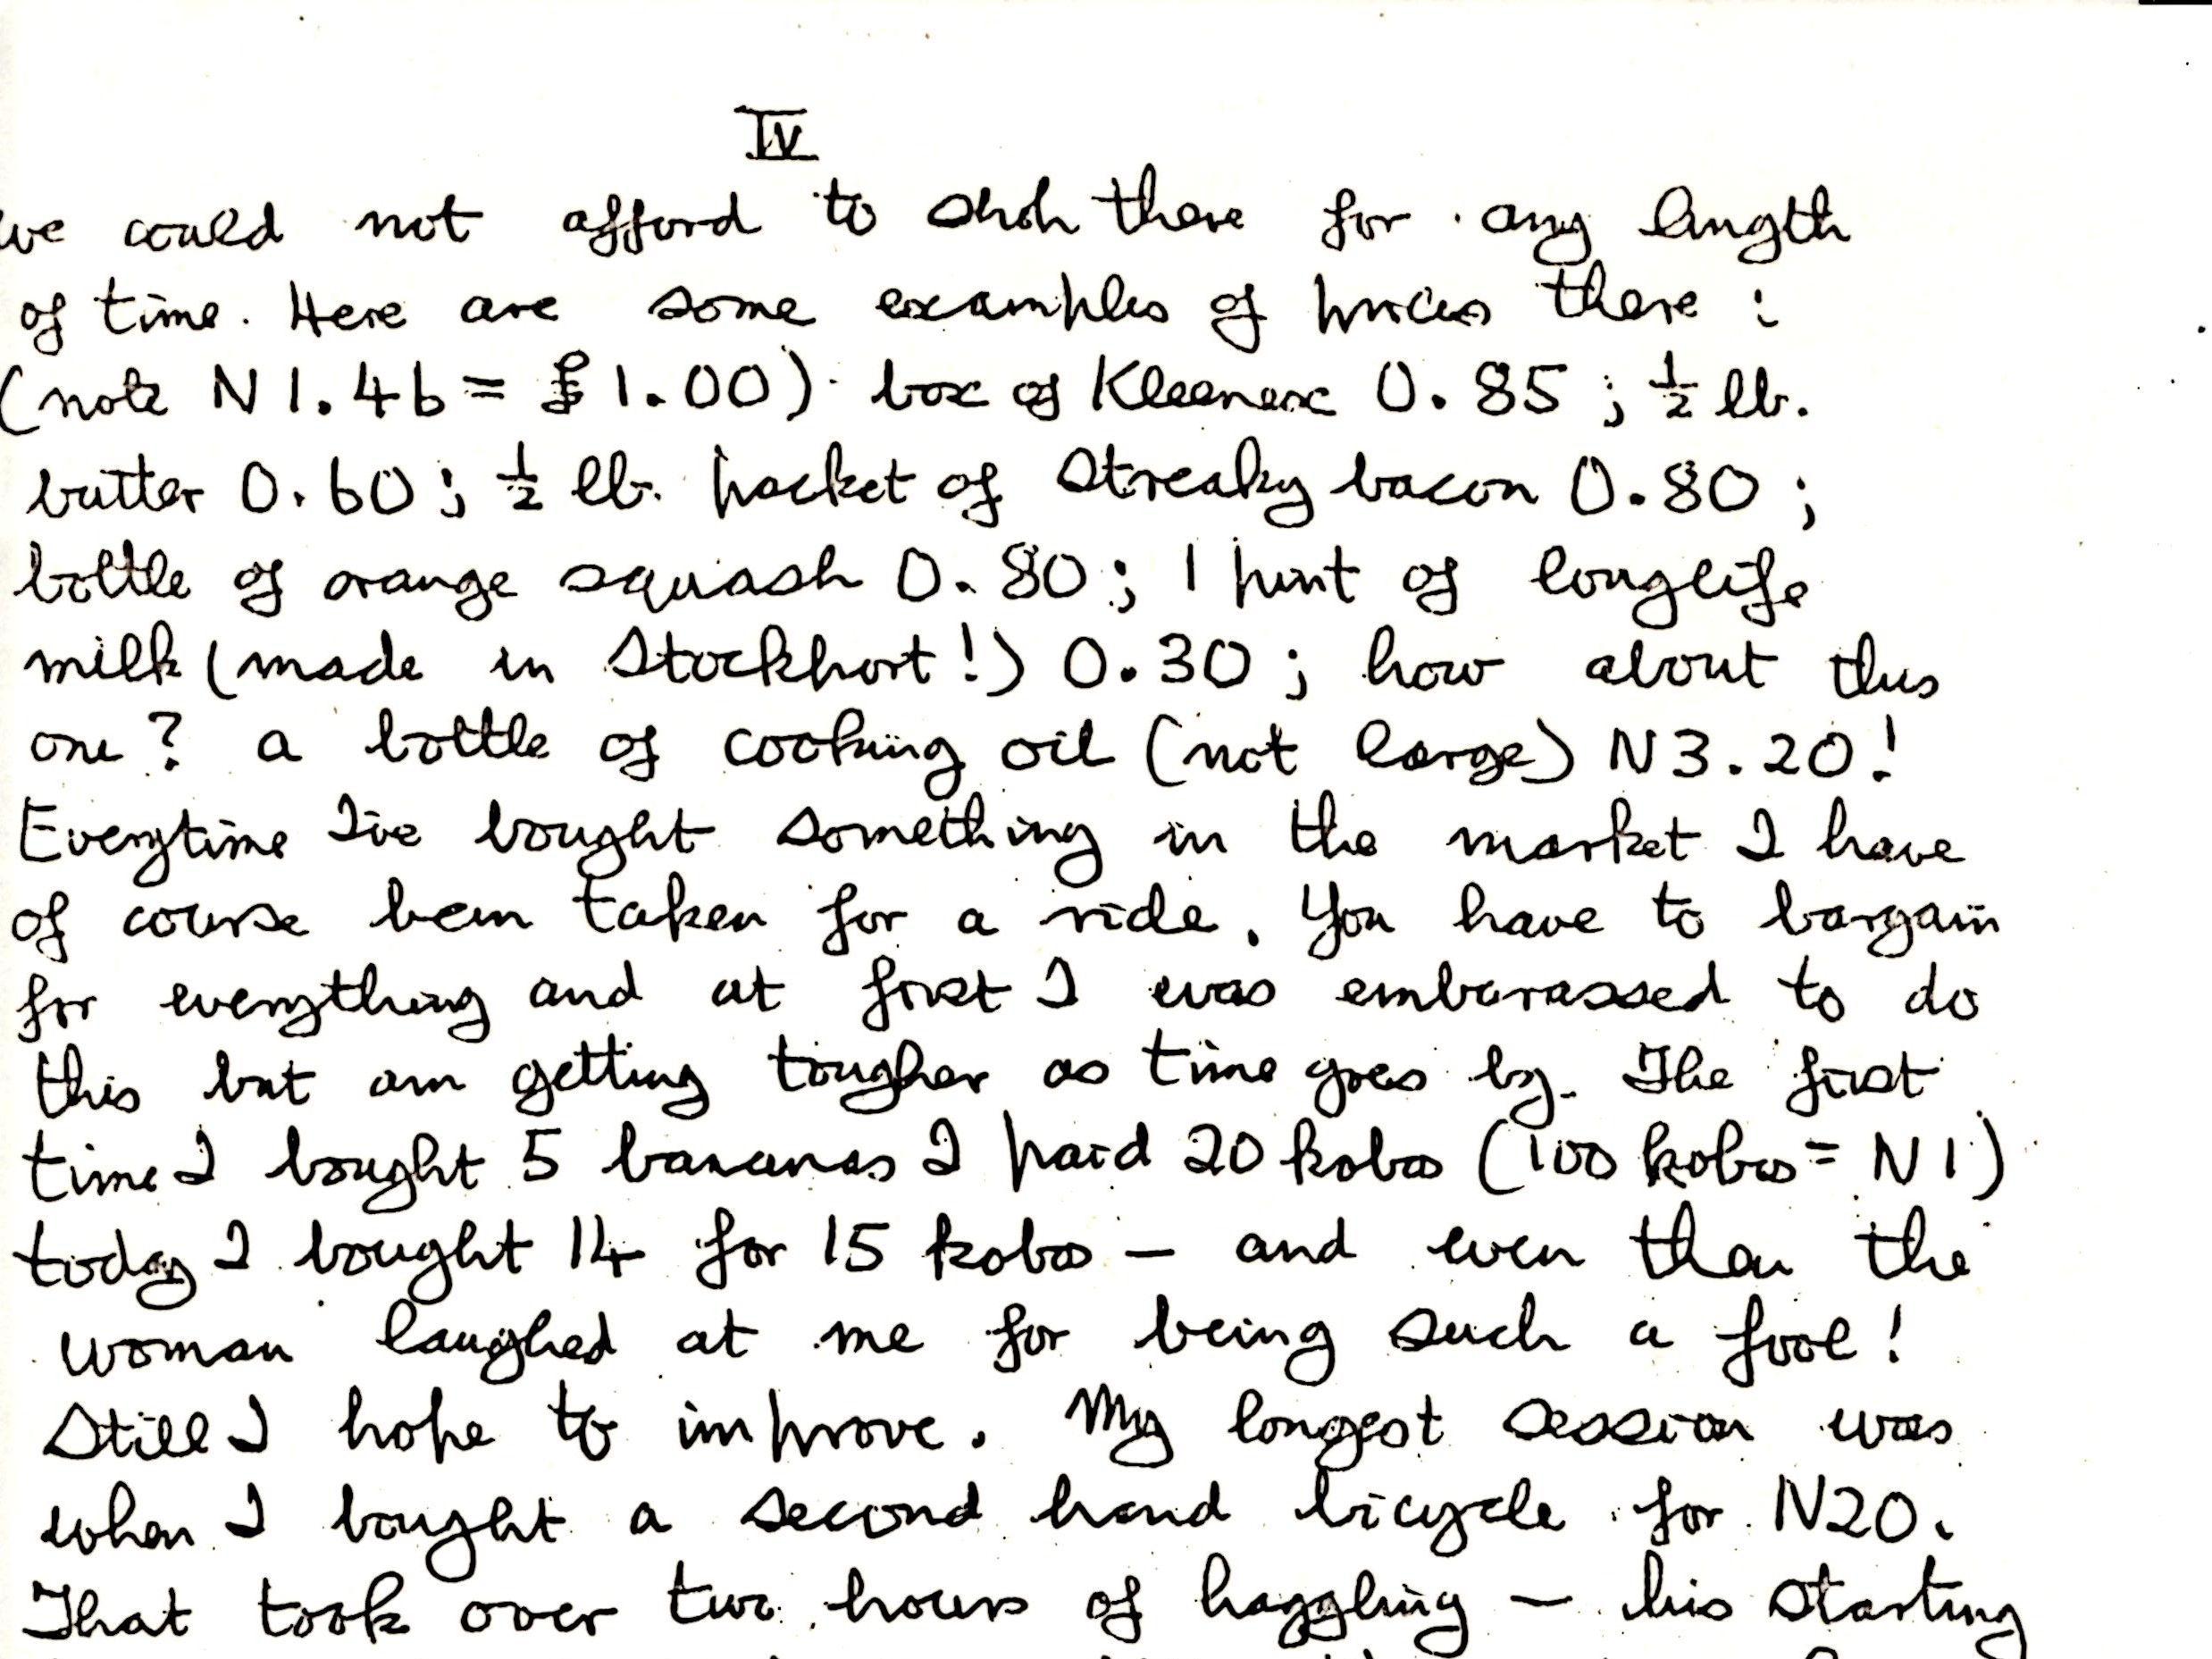 IV
we could not afford to shop there for any length
of time. Here are some examples of prices there :
(note N1.46 = £1.00) box of Kleenex 0.85 ; ½ lb.
butter 0.60 ; ½ lb. packet of streaky bacon 0.80 ;
bottle of orange squash 0.80 ; 1 pint of longlife
milk (made in Stockport!) 0.30 ; how about this
one? a bottle of cooking oil (not large) N3.20!
Everytime I've bought something in the market I have
of course been taken for a ride. You have to bargain
for everything and at first I was embarassed to do
this but am getting tougher as time goes by. The first
time I bought 5 bananas I paid 20 kobos (100 kobos = N1)
today I bought 14 for 15 kobos – and even then the
woman laughed at me for being such a fool!
Still I hope to improve. My longest session was
when I bought a second hand bicycle for N20.
That took over two hours of haggling – his starting